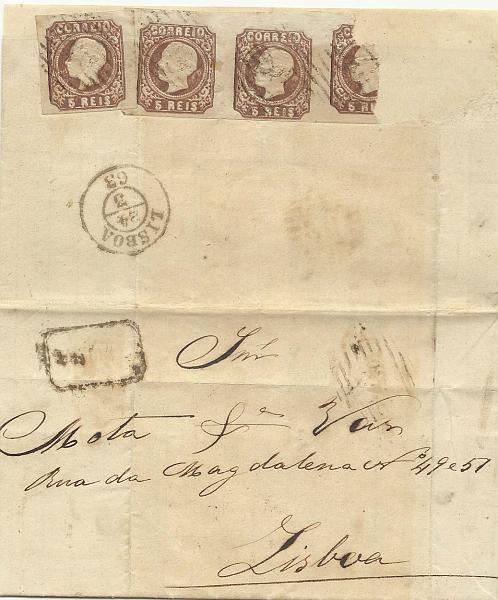 CORREIO CORREIO CORREIO C
5 REIS 5 REIS 5 REIS 5 R
LISBOA
24
3
63
Snr
Mota & Vaz
Rua da Magdalena Nº 49 e 51
Lisboa